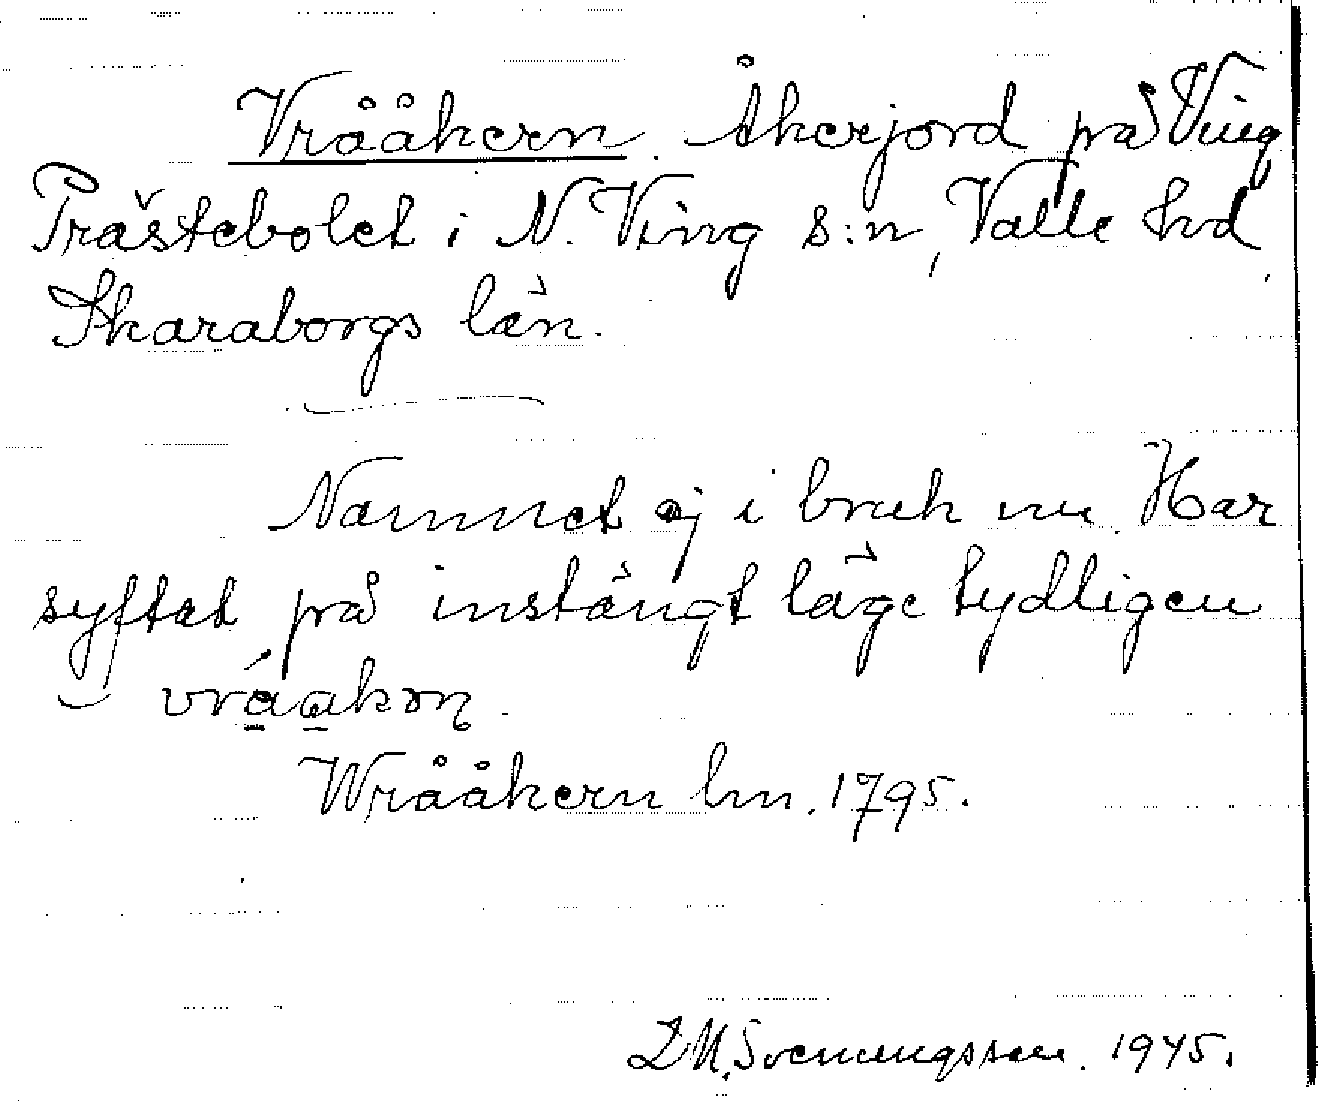 Vrååkern. Åkerjord på Ving
Prästebolet i N. Ving s:n, Valle hd,
Skaraborgs län.
Namnet ej i bruk nu. Har
syftat på instängt läge tydligen
vråakon.
Wrååkern hm. 1795.
D M. Svenungsson. 1945.